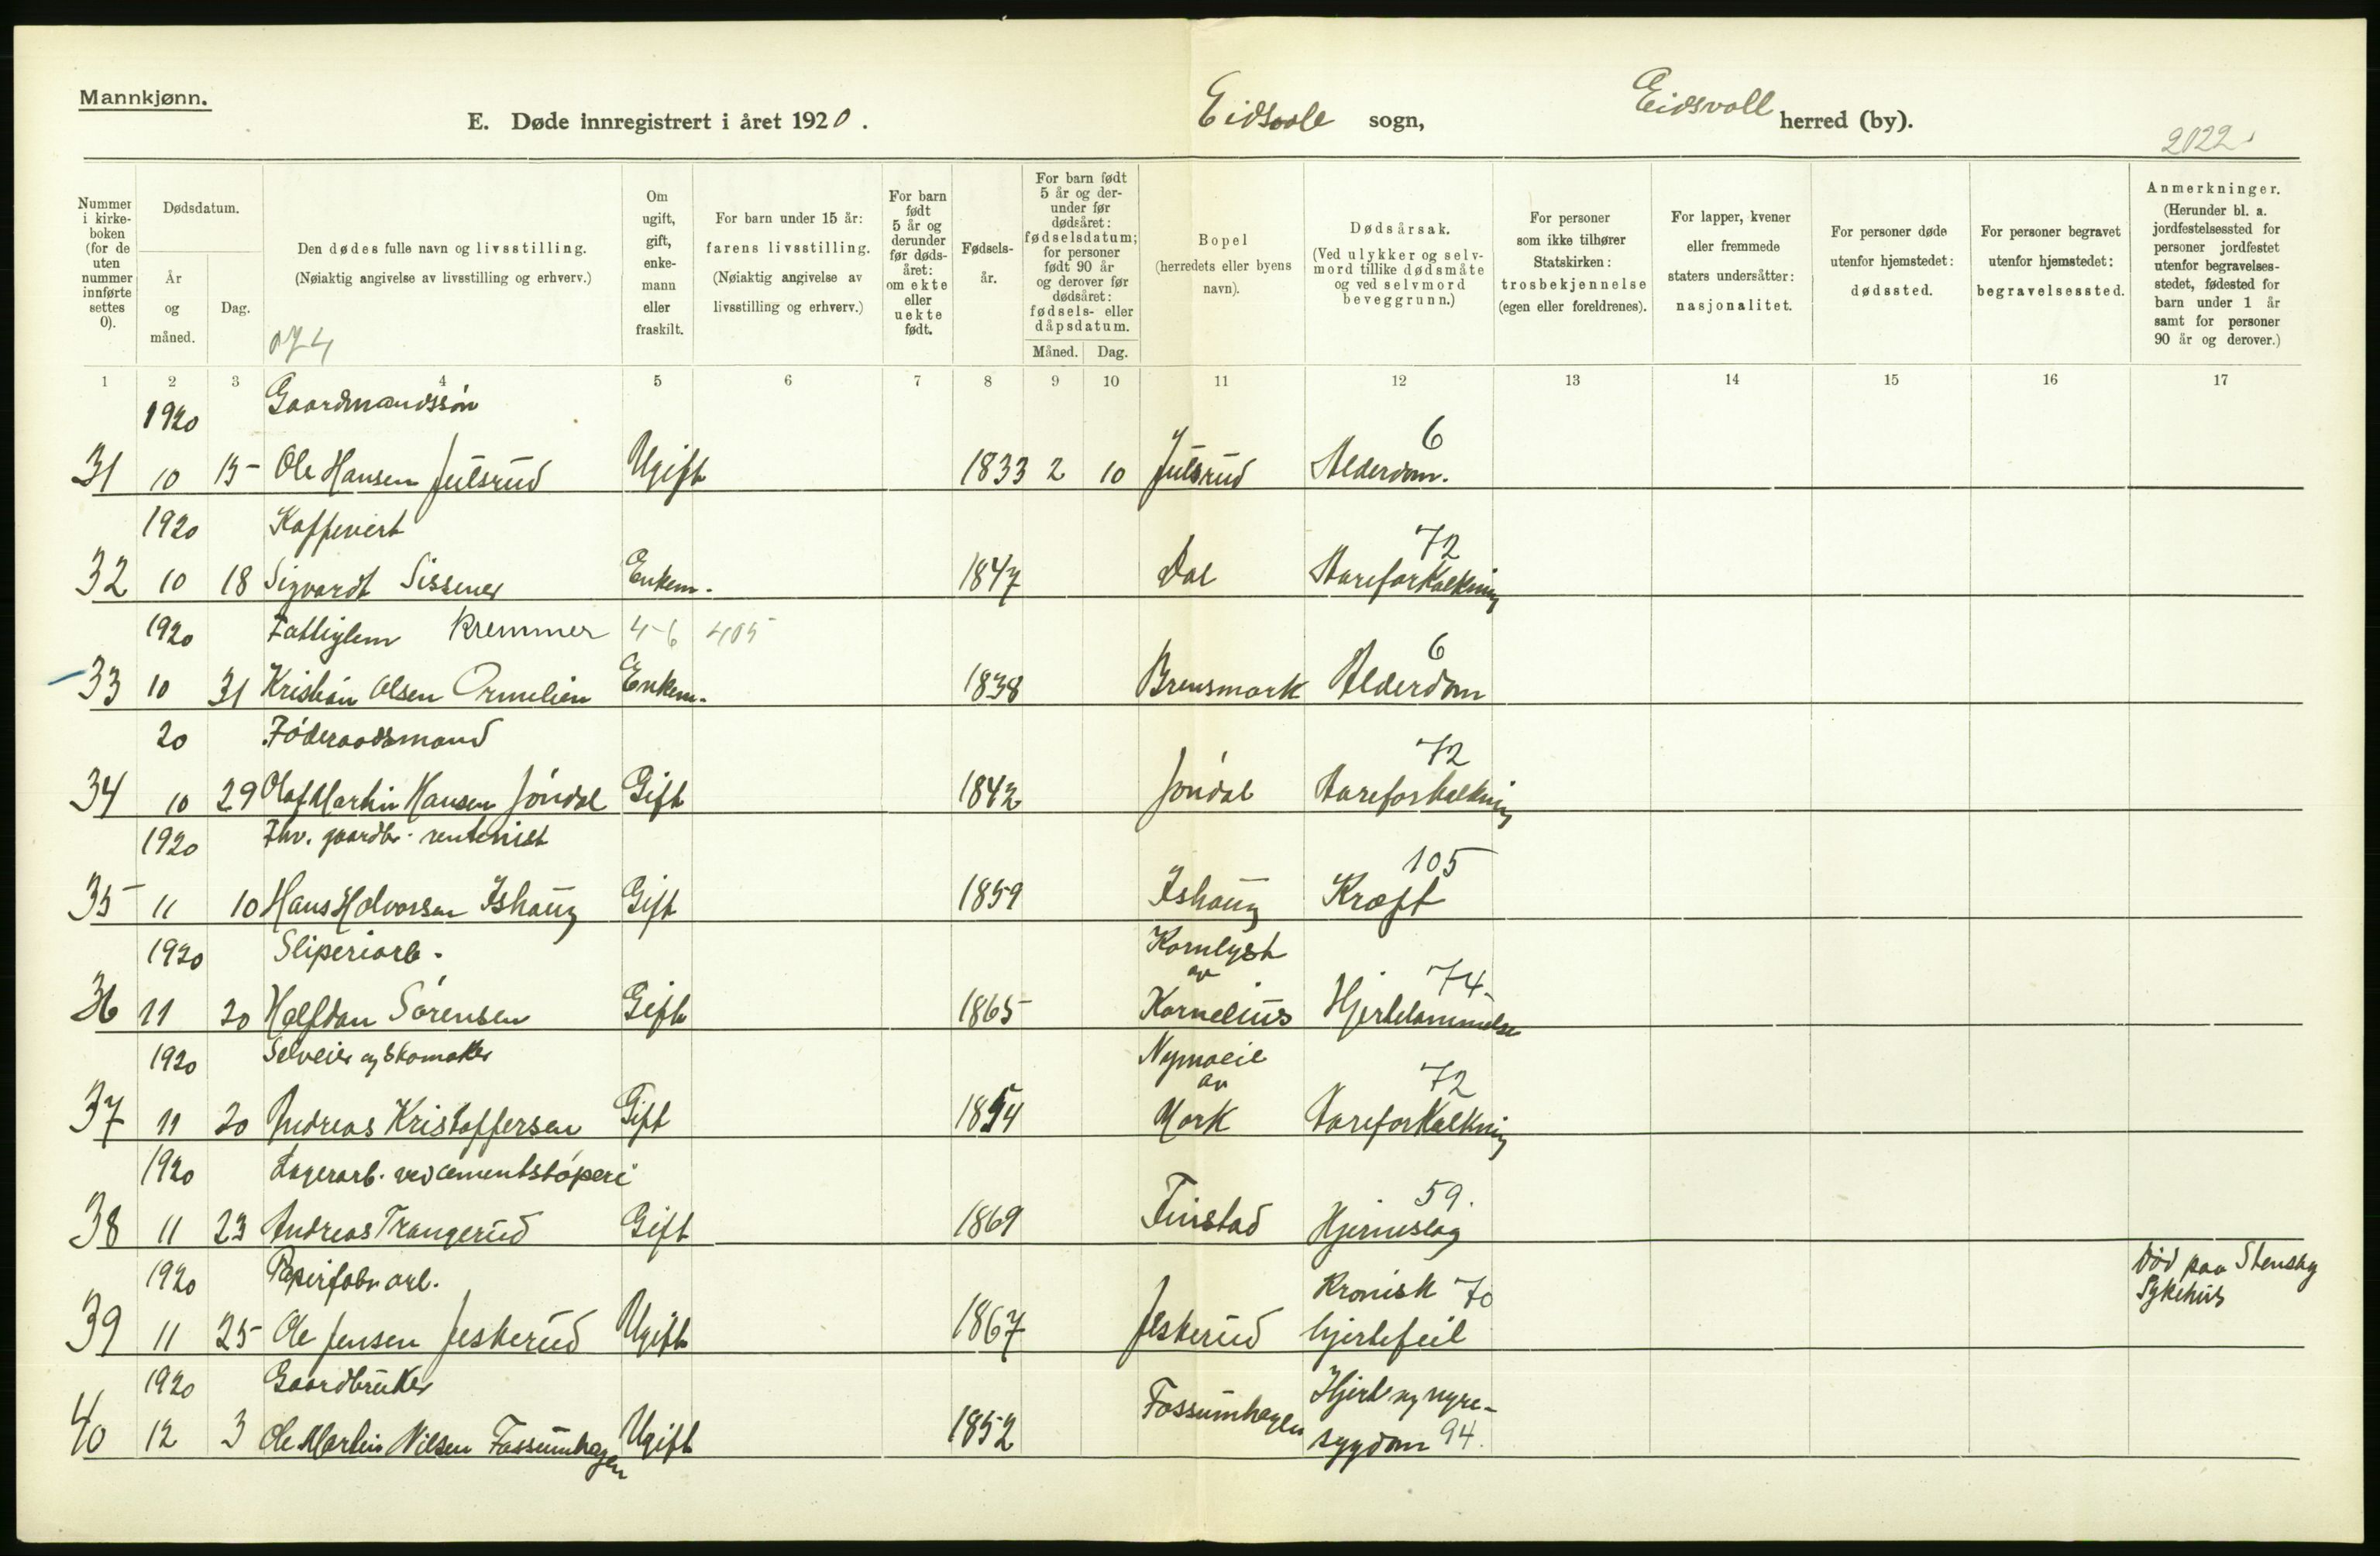 Mannkjønn.
E. Døde innregistrert i året 1920.
Eidsvoll sogn,
Eidsvoll herred (by).
2022
Nummer i kirke-boken (for de uten nummer innførte settes 0).
Dødsdatum.
År og måned.
Dag.
Den dødes fulle navn og livsstilling.
(Nøiaktig angivelse av livsstilling og erhverv.)
Om ugift, gift, enke-mann eller fraskilt.
For barn under 15 år: farens livsstilling.
(Nøiaktig angivelse av livsstilling og erhverv.)
For barn født 5 år og derunder før døds-året: om ekte eller uekte født.
Fødsels-år.
For barn født 5 år og der-under før dødsåret: fødselsdatum; for personer født 90 år og derover før dødsåret: fødsels- eller dåpsdatum.
Måned. Dag.
Bopel (herredets eller byens navn).
Dødsårsak.
(Ved ulykker og selv-mord tillike dødsmåte og ved selvmord beveggrunn.)
For personer som ikke tilhører Statskirken: trosbekjennelse (egen eller foreldrenes).
For lapper, kvener eller fremmede staters undersåtter: nasjonalitet.
For personer døde utenfor hjemstedet: dødssted.
For personer begravet utenfor hjemstedet: begravelsessted.
Anmerkninger.
(Herunder bl. a. jordfestelsessted for personer jordfestet utenfor begravelses-stedet, fødested for barn under 1 år samt for personer 90 år og derover.)
1 2 3 4 5 6 7 8 9 10 11 12 13 14 15 16 17
1920 Gaardmandssøn 6
31 10 15 Ole Hansen Julsrud Ugift 1833 2 10 Julsrud Alderdom.
1920 Kaffevert 72
32 10 18 Sigvardt Sissener Enkem. 1847 Dal Aareforkalkning
1920 Fattiglem Kremmer 4-6 405 6
33 10 31 Kristian Olsen Ormlien Enkem. 1838 Brensmork Alderdom
20 Føderaadsmand 72
34 10 29 Olaf Martin Hansen Jøndal Gift 1842 Jøndal Aareforkalkning
1920 Fhv. gaardbr. rentenist 105
35 11 10 Hans Halvorsen Ishaug Gift 1859 Ishaug Kræft
1920 Sliperiarb. Kornlyst av 74
36 11 20 Halfdan Sørensen Gift 1865 Kornelius Hjertelammelse
1920 Selveier og skomaker Nymoeie av 72
37 11 20 Andreas Kristoffersen Gift 1854 Mork Aareforkalkning
1920 Lagerarb. ved cementstøperi 59.
38 11 23 Andreas Trangerud Gift 1869 Finstad Hjerneslag
1920 Papirfabr arb. Kronisk 70 Død paa Stensby Sykehus
39 11 25 Ole Jensen Jeskerud Ugift 1867 Jeskerud hjertefeil
1920 Gaardbruker Hjerte og nyre-
40 12 3 Ole Martin Nilsen Fossumhagen Ugift 1852 Fossumhagen sygdom 94.